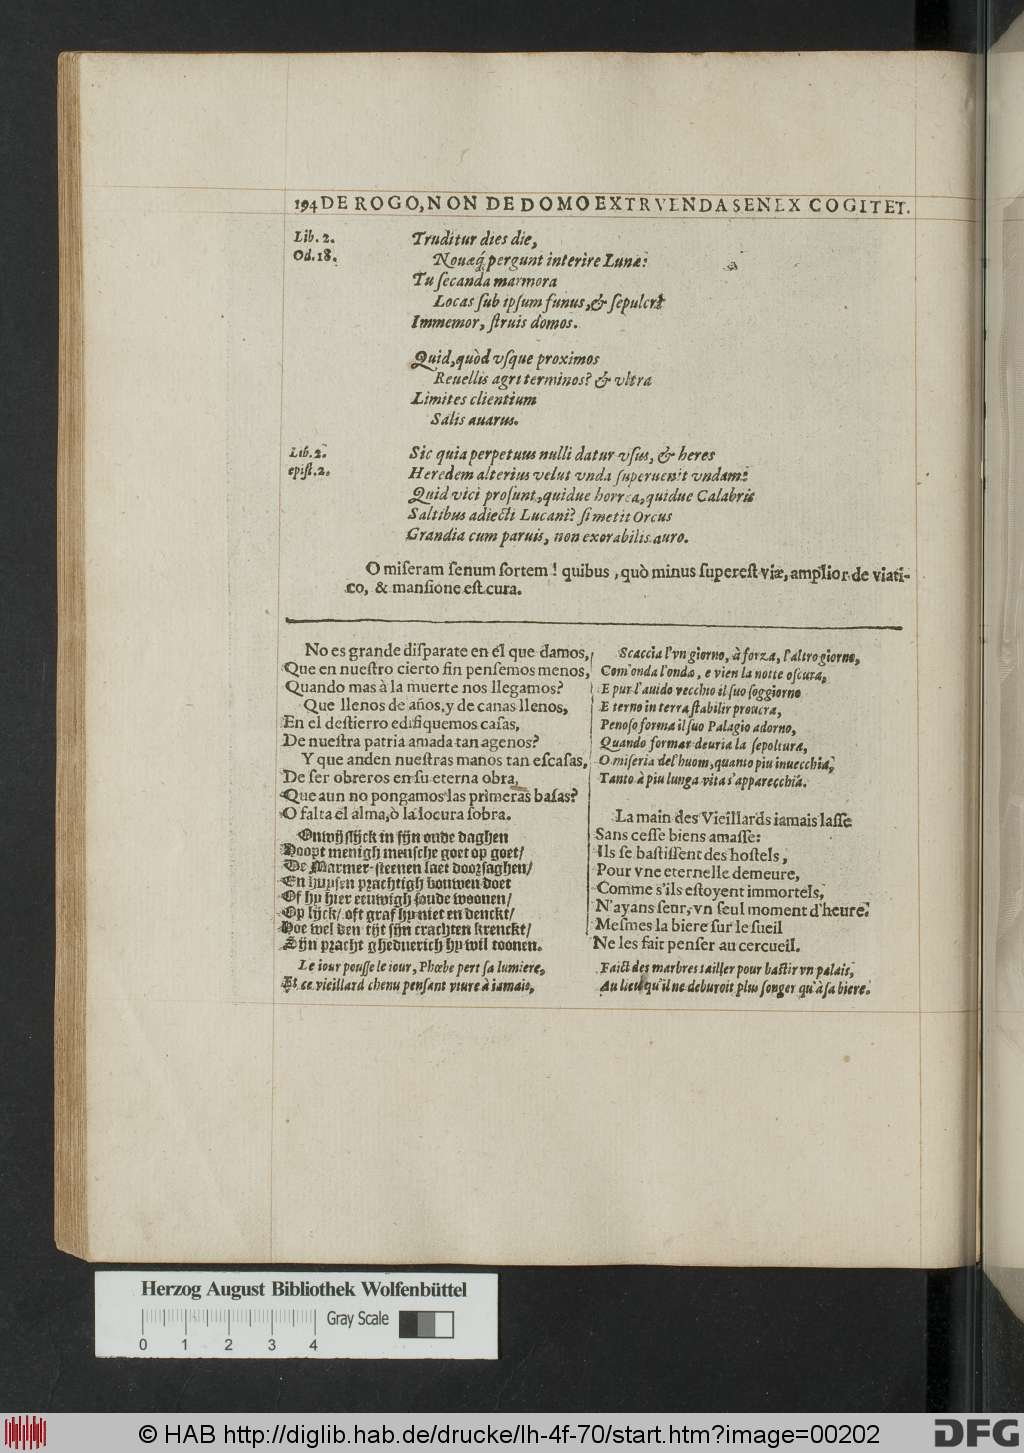 194 DE ROGO, NON DE DOMO EXTRVENDA SENEX COGITET.
Lib. 2.
Od. 18.
Truditur dies die,
Nouæq́ pergunt interire Lunæ:
Tu ſecanda marmora
Locas ſub ipſum funus, & ſepulcri
Immemor, ſtruis domos.
Quid, quòd vſque proximos
Reuellis agri terminos? & vltra
Limites clientium
Salis auarus.
Lib. 2.
epiſt. 2.
Sic quia perpetuus nulli datur vſus, & heres
Heredem alterius velut vnda ſuperuenit vndam:
Quid vici proſunt, quidue horrea, quidue Calabris
Saltibus adiecti Lucani? ſi metit Orcus
Grandia cum paruis, non exorabilis auro.
O miſeram ſenum ſortem! quibus, quò minus ſupereſt viæ, amplior de viati-
co, & manſione eſt cura.
No es grande diſparate en él que damos,
Que en nueſtro cierto fin penſemos menos,
Quando mas à la muerte nos llegamos?
Que llenos de años, y de canas llenos,
En el deſtierro edifiquemos caſas,
De nueſtra patria amada tan agenos?
Y que anden nueſtras manos tan eſcaſas,
De ſer obreros en ſu eterna obra,
Que aun no pongamos las primeras baſas?
O falta él alma, ò la locura ſobra.
Onwijſlijck in ſijn oude daghen
Hoopt menigh menſche goet op goet/
De Marmer-ſteenen laet doorſaghen/
En huyſen prachtigh bouwen doet
Of hy hier eeuwigh ſoude woonen/
Op lijck/ oft graf hy niet en denckt/
Hoe wel den tijt ſijn crachten krenckt/
Sijn pracht ghedueriсh hy wil toonen.
Le iour pouſſe le iour, Phœbe pert ſa lumiere,
Et ce vieillard chenu penſant viure à iamais,
Scaccia l'vn giorno, à forza, l'altro giorno,
Com'onda l'onda, e vien la notte oſcura,
E pur l'auido vecchio il ſuo ſoggiorno
E terno in terra ſtabilir procura,
Penoſo forma il ſuo Palagio adorno,
Quando formar deuria la ſepoltura,
O miſeria del'huom, quanto piu inuecchia,
Tanto à piu lunga vita s'apparecchia.
La main des Vieillards iamais laſſe
Sans ceſſe biens amaſſe:
Ils ſe baſtiſſent des hoſtels,
Pour vne eternelle demeure,
Comme s'ils eſtoyent immortels,
N'ayans ſeur, vn ſeul moment d'heure:
Meſmes la biere ſur le ſueil
Ne les fait penſer au cercueil.
Faict des marbres tailler pour baſtir vn palais,
Au lieu qu'il ne deburoit plus ſonger qu'à ſa biere.
Herzog August Bibliothek Wolfenbüttel
Gray Scale
0 1 2 3 4
© HAB http://diglib.hab.de/drucke/lh-4f-70/start.htm?image=00202
DFG